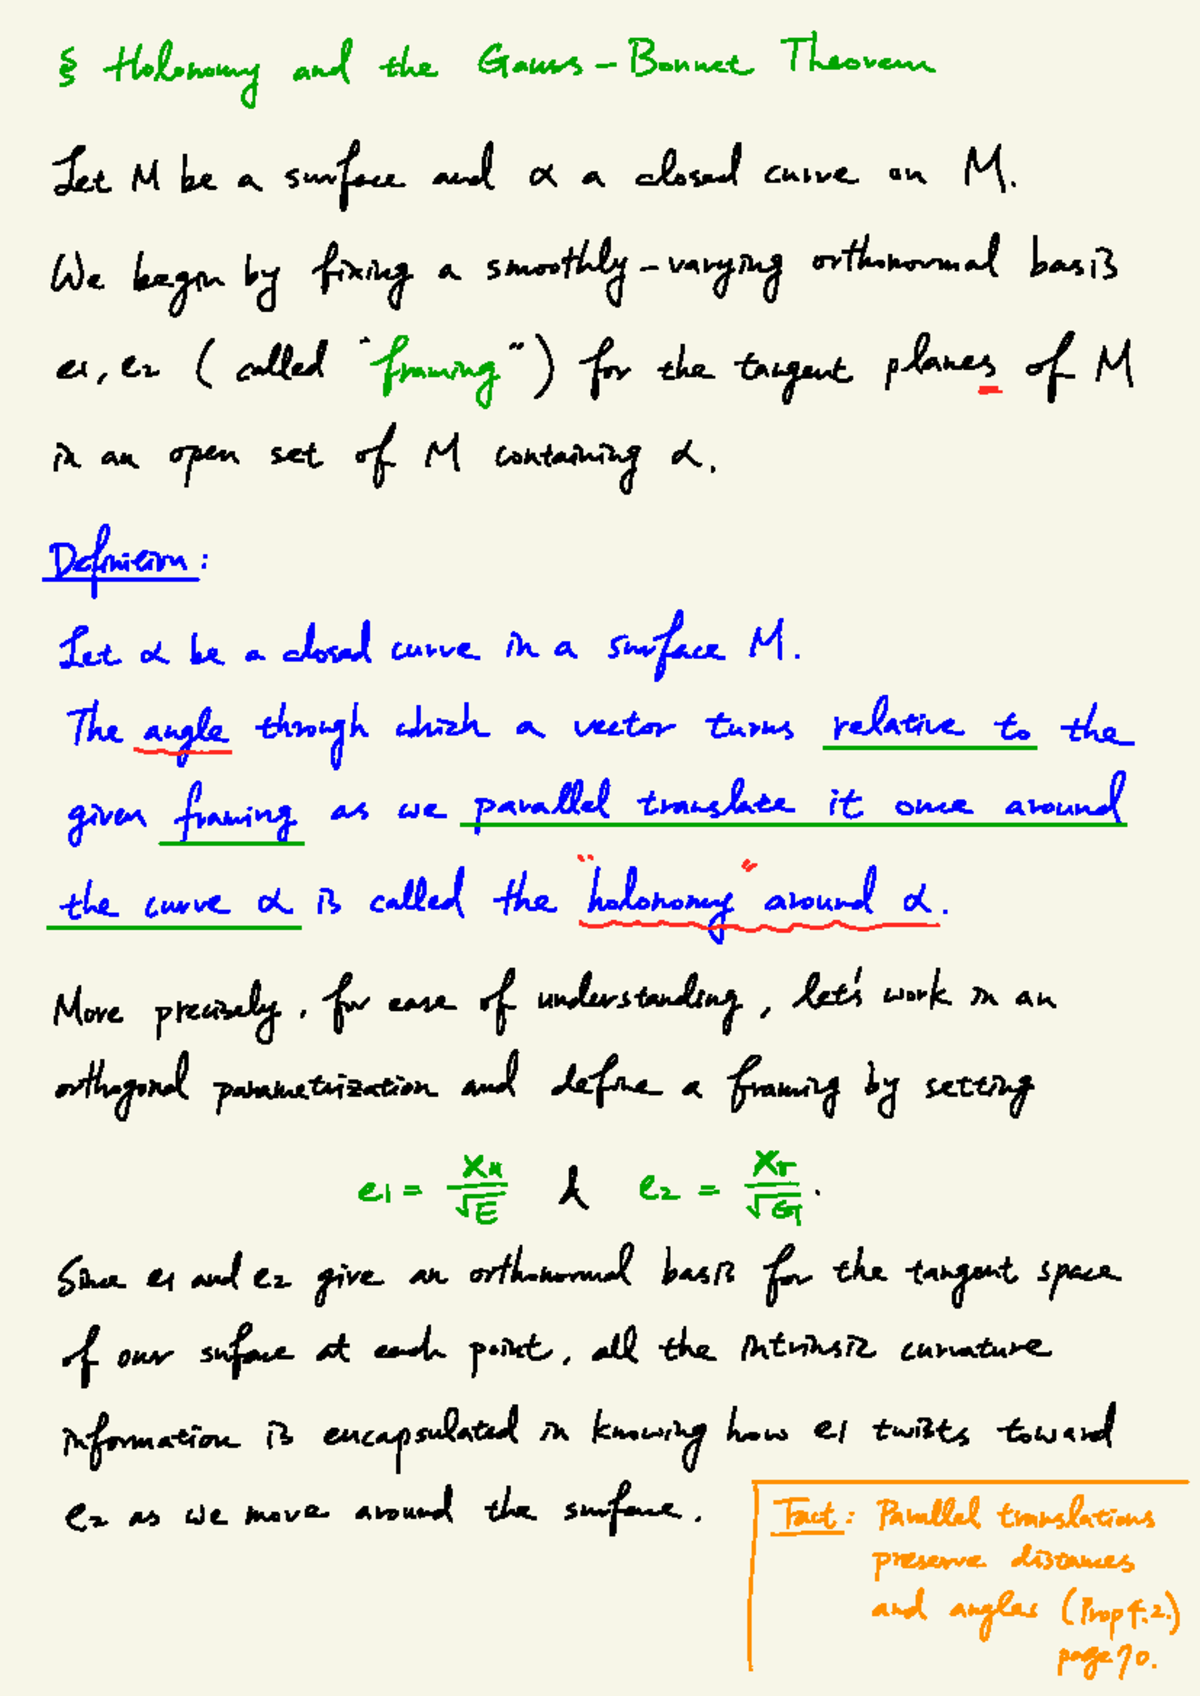 § Holonomy and the Gauss-Bonnet Theorem
Let M be a surface and α a closed curve on M.
We begin by fixing a smoothly-varying orthonormal basis
e1, e2 ( called "framing" ) for the tangent planes of M
in an open set of M containing α.
Definition:
Let α be a closed curve in a surface M.
The angle through which a vector turns relative to the
given framing as we parallel translate it once around
the curve α is called the "holonomy" around α.
More precisely, for ease of understanding, let's work in an
orthogonal parametrization and define a framing by setting
e1 = Xu/√E & e2 = Xv/√G.
Since e1 and e2 give an orthonormal basis for the tangent space
of our suface at each point, all the intrinsic curvature
information is encapsulated in knowing how e1 twists toward
e2 as we move around the surface.
Fact: Parallel translations
preserve distances
and angles (Prop 4.2.)
page 70.